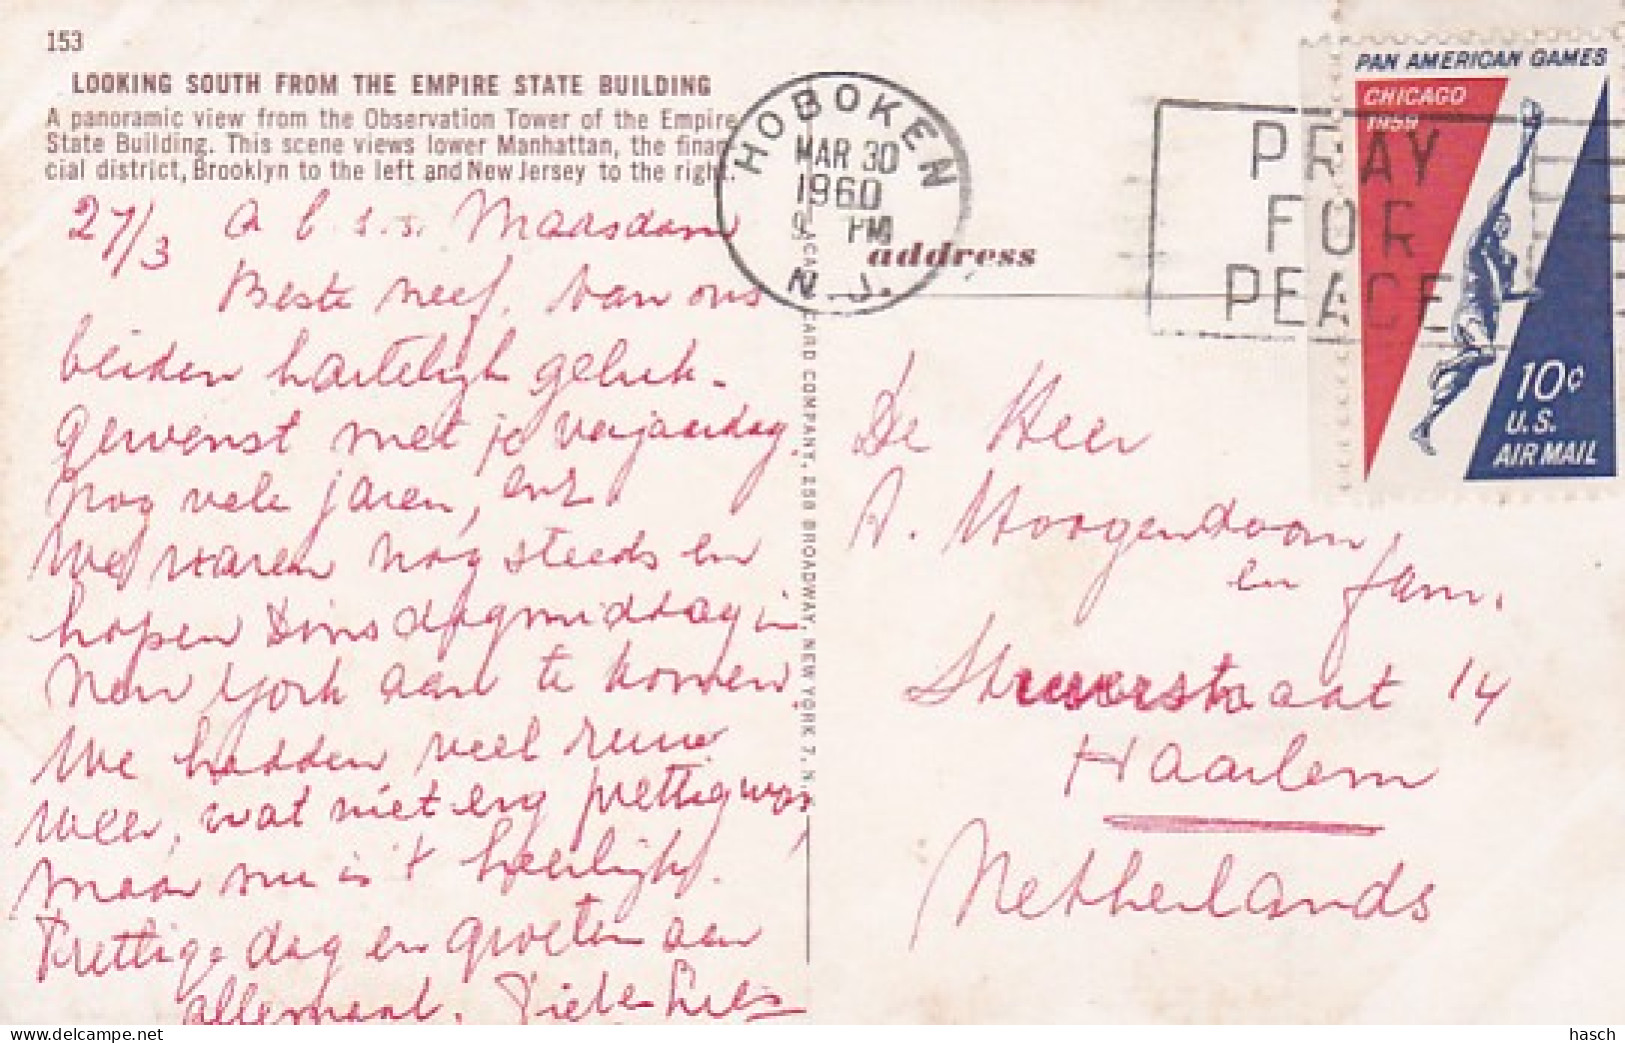 153
LOOKING SOUTH FROM THE EMPIRE STATE BUILDING
A panoramic view from the Observation Tower of the Empire
State Building. This scene views lower Manhattan, the finan-
cial district, Brooklyn to the left and New Jersey to the right.
27/3 a b s.s. Maasdam
Beste neef, van ons
beiden hartelijk geluk-
gewenst met je verjaardag,
nog vele jaren, enz
We varen nog steeds en
hopen Dinsdagmiddag in
New York aan te komen
We hadden veel ruw
weer, wat niet erg prettig was,
maar nu is 't heerlijk.
Prettige dag en groeten aan
allemaal.
HOBOKEN
MAR 30
1960
PM
N.J.
PRAY
FOR
PEACE
address
CARD COMPANY, 250 BROADWAY, NEW YORK 7, N.Y.
PAN AMERICAN GAMES
CHICAGO
1959
10c
U.S.
AIR MAIL
De Heer
A. Hoogendoorn
en fam.
14
Haarlem
Netherlands
hasch